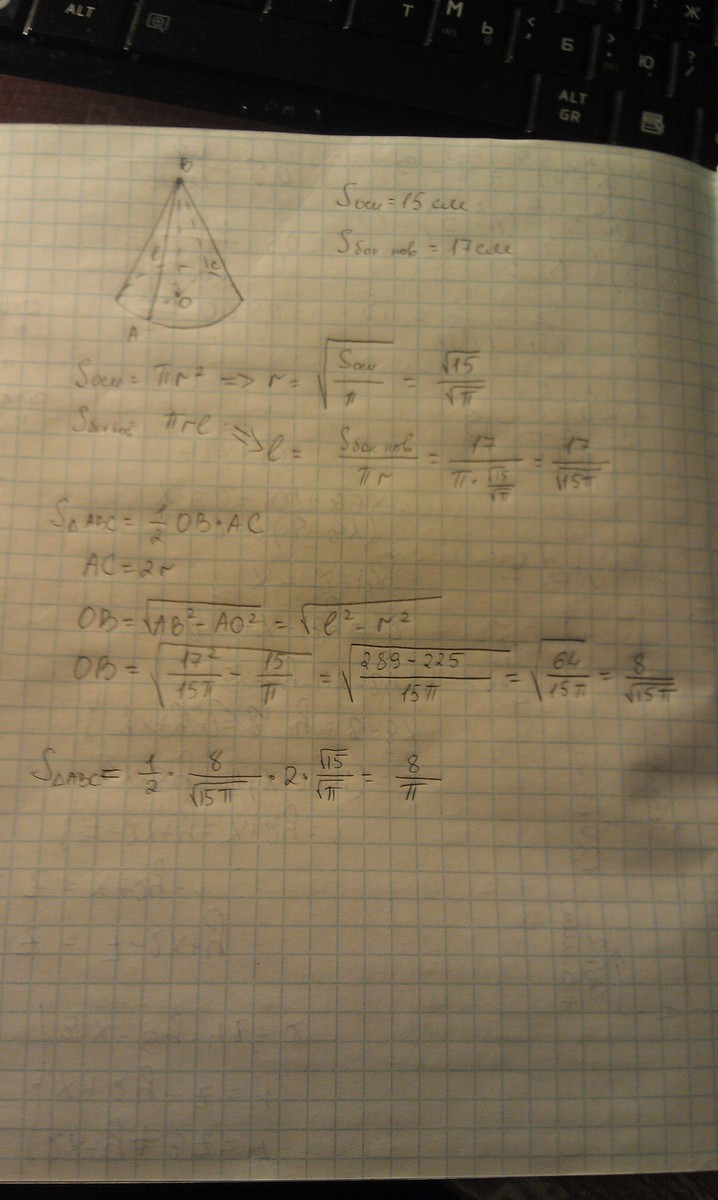 ALT
Т
М
Ь
<
,
Б
>
.
Ю
?
/
Ж
ALT
GR
B
C
O
A
Sосн = 15 см
Sбок пов = 17 см
Sосн = πr² => r = √(Sосн/π) = √15/√π
Sбок пов πrl => l = Sбок пов/(πr) = 17/(π·√15/√π) = 17/√(15π)
S△ABC = 1/2 OB·AC
AC = 2r
OB = √(AB² - AO²) = √(l² - r²)
OB = √(17²/(15π) - 15/π) = √((289-225)/(15π)) = √(64/(15π)) = 8/√(15π)
S△ABC = 1/2 · 8/√(15π) · 2 · √15/√π = 8/π